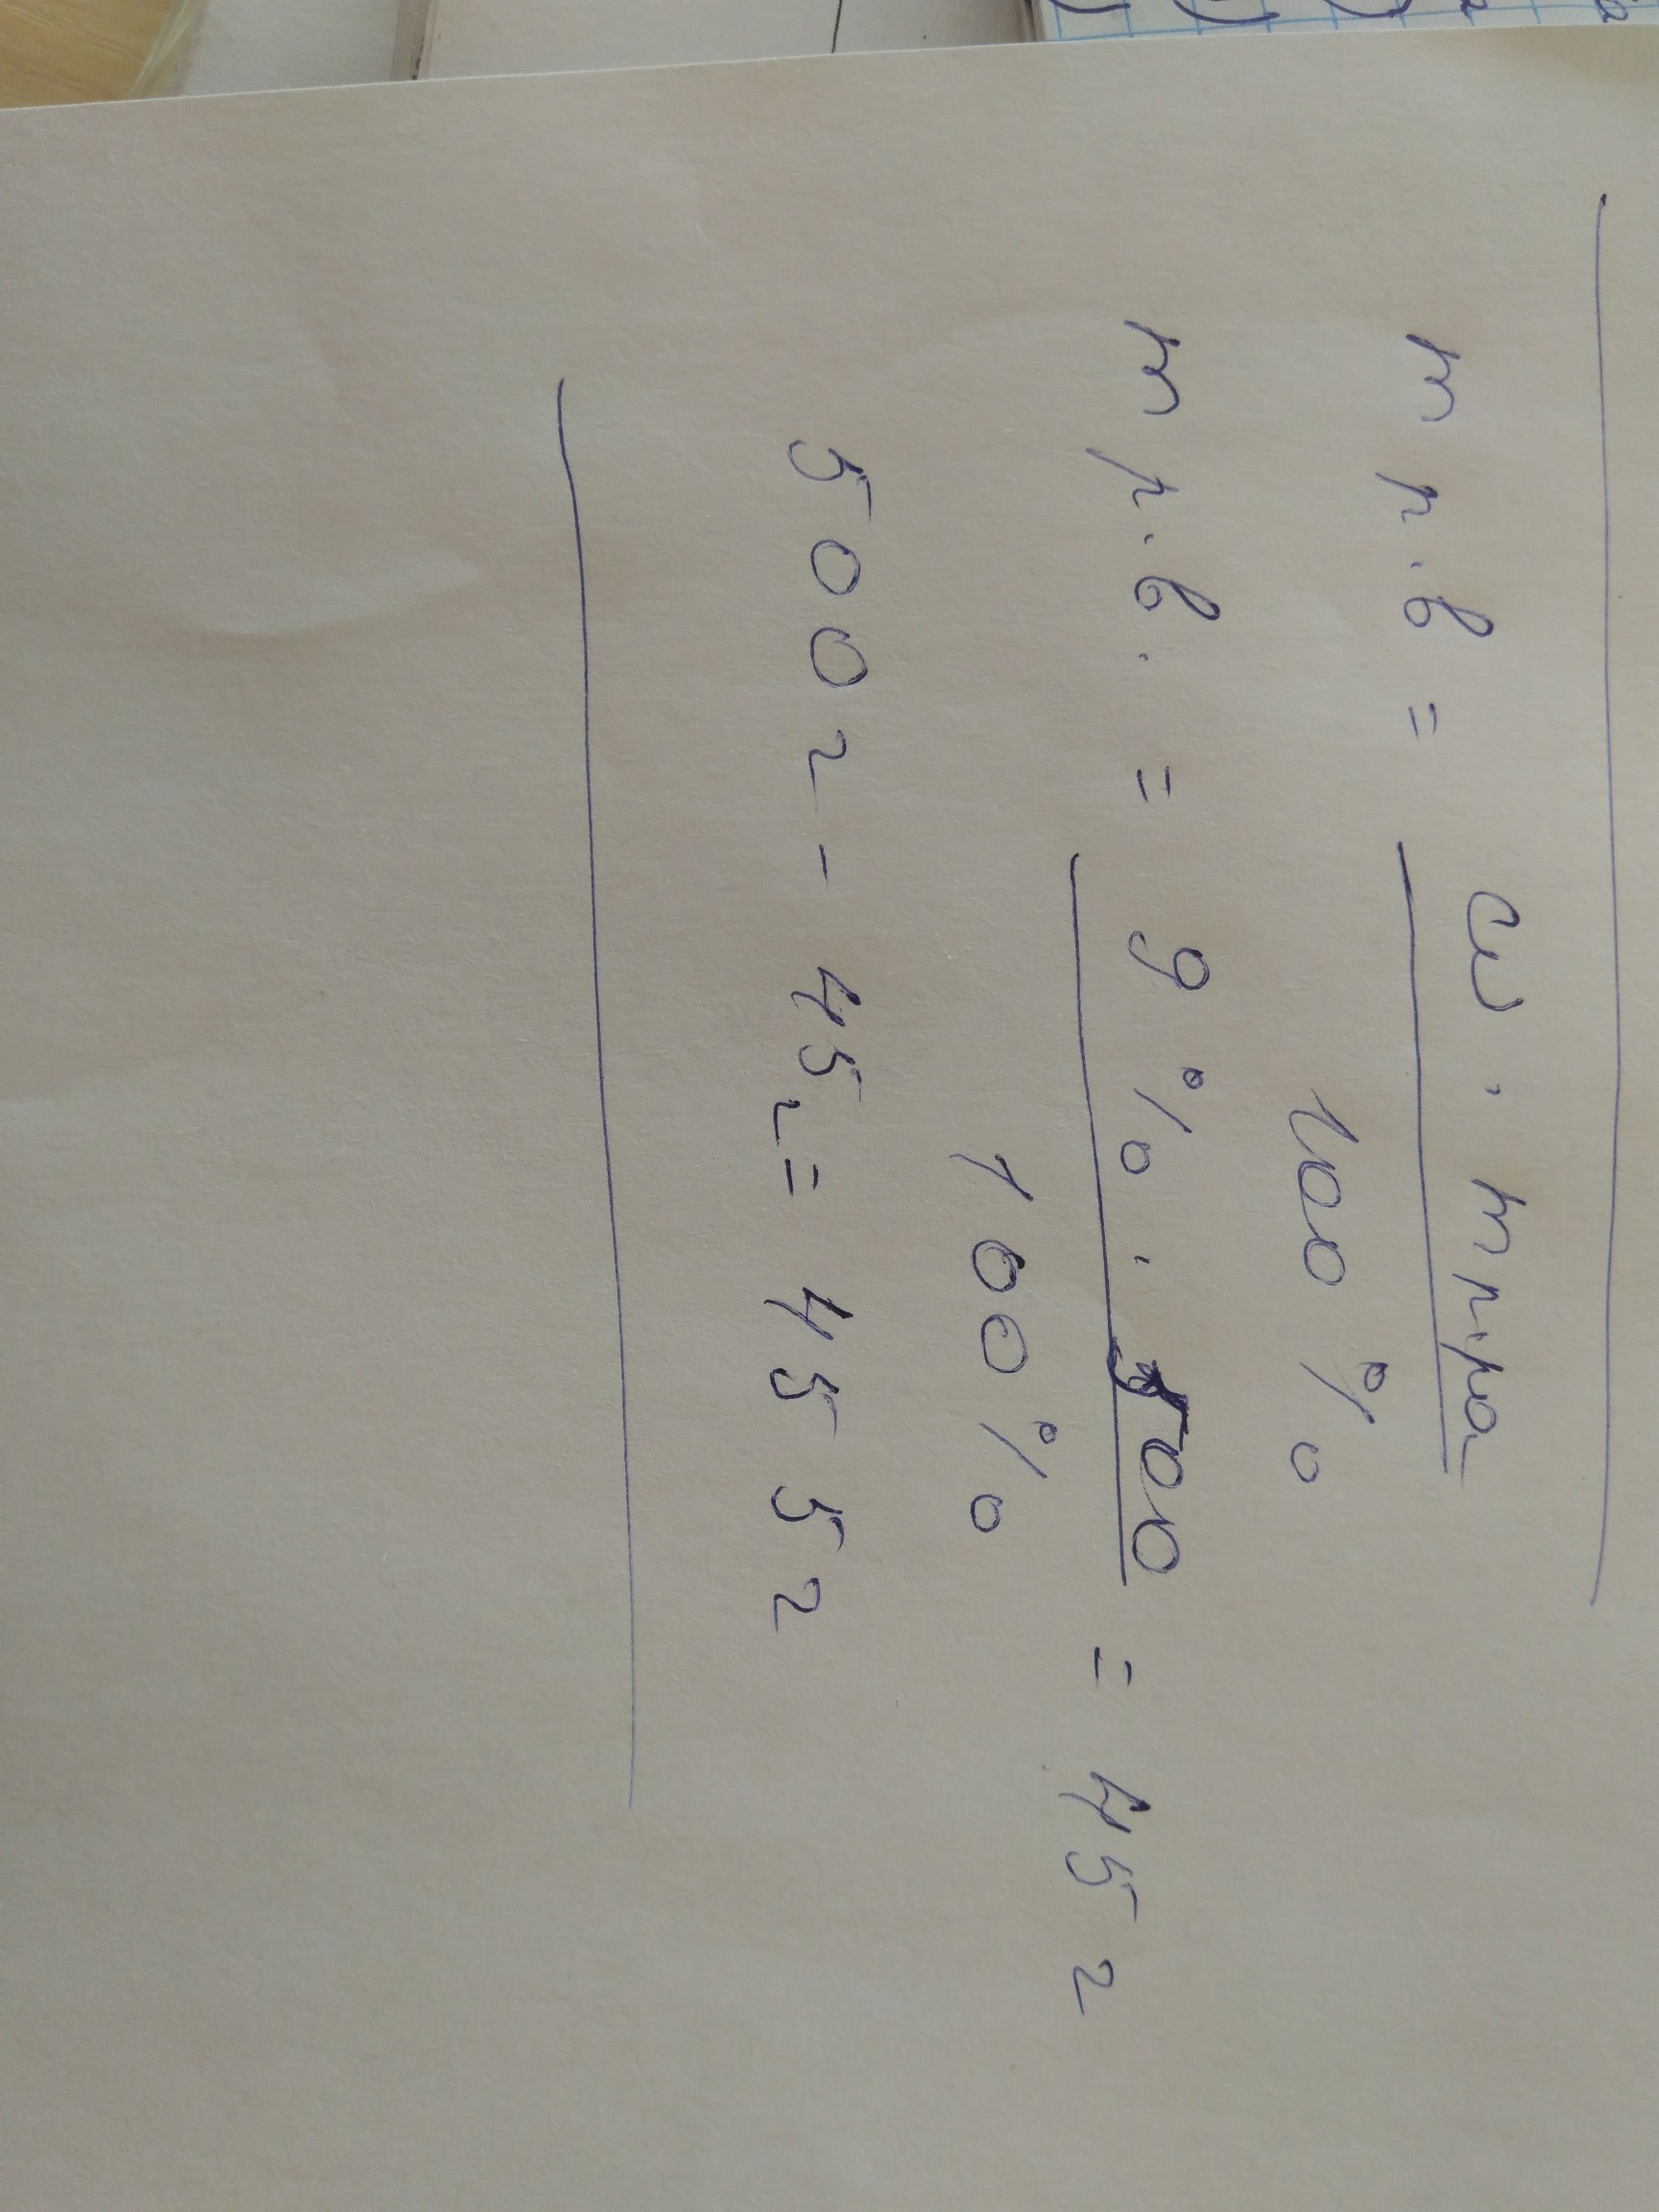 m р.в = ω · m р-ра
100 %
m р.в. = 9 % · 500 = 45 г
100 %
500 г - 45 г = 455 г